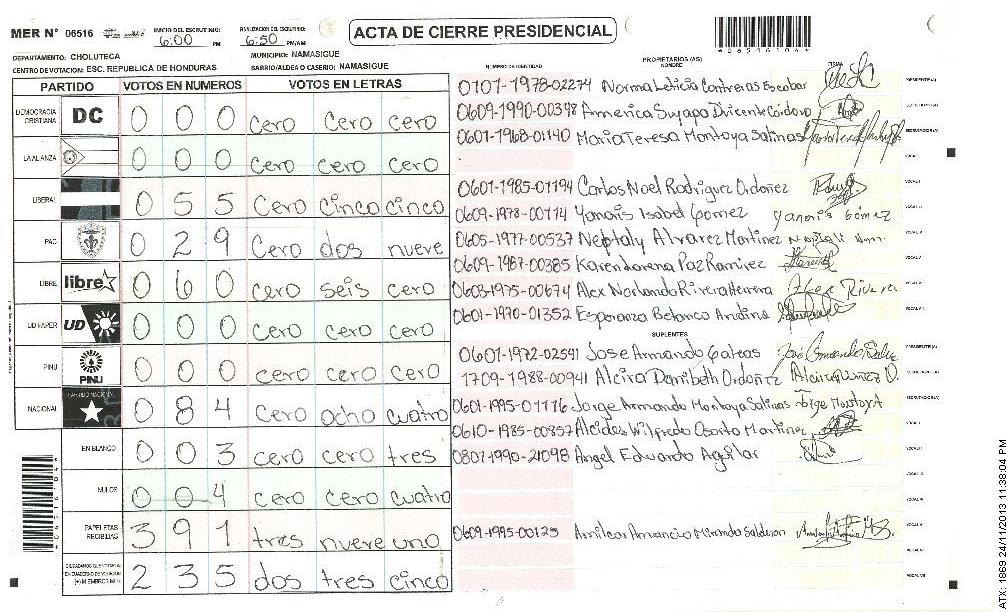 MER N° 06516
INICIO DEL ESCRUTINIO: 6:00 PM
FINALIZACION DEL ESCRUTINIO: 6:50 PM/AM
ACTA DE CIERRE PRESIDENCIAL
DEPARTAMENTO: CHOLUTECA
MUNICIPIO: NAMASIGUE
CENTRO DE VOTACION: ESC. REPUBLICA DE HONDURAS
BARRIO/ALDEA O CASERIO: NAMASIGUE
PARTIDO VOTOS EN NUMEROS VOTOS EN LETRAS
DEMOCRACIA CRISTIANA DC 0 0 0 cero cero cero
LA ALIANZA 0 0 0 cero cero cero
LIBERAL 0 5 5 cero cinco cinco
PAC 0 2 9 cero dos nueve
LIBRE libre 0 6 0 cero seis cero
UD FAPER UD 0 0 0 cero cero cero
PINU PINU 0 0 0 cero cero cero
NACIONAL PARTIDO NACIONAL 0 8 4 cero ocho cuatro
EN BLANCO 0 0 3 cero cero tres
NULOS 0 0 4 cero cero cuatro
PAPELETAS RECIBIDAS 3 9 1 tres nueve uno
2 3 5 dos tres cinco
NUMERO DE IDENTIDAD
PROPIETARIOS (AS)
NOMBRE
FIRMA
0101-1978-02274 Norma Leticia Contreras Escobar PRESIDENTE(A)
0609-1990-00398 America Suyapa
0601-1968-01140 Maria Teresa Montoya Salinas ESCRUTADOR(A)
VOCAL I
0601-1985-01194 Carlos Noel Rodriguez Ordoñez
0609-1978-00114 Yanoris Isabel Gomez Yanoris Gómez
0605-1977-00537 Neptaly Alvarez Martinez
0609-1987-00385 Karen Lorena Paz Ramirez
0603-1975-00674 Alex Norlando Rivera Herrera Alex Rivera
0601-1970-01352 Esperanza Betanco Andino
SUPLENTES
0601-1972-02541 Jose Armando PRESIDENTE(A)
1709-1988-00941 Alcira Danibeth Ordoñez
0601-1995-01116 Jorge Armando Montoya Salinas Jorge Montoya ESCRUTADOR(A)
0610-1985-00857 Alcides Wilfredo Osorto Martinez
0807-1990-21098 Angel Eduardo Aguilar
0609-1995-00125 Amilcar Amancio
ATX: 1869 24/11/2013 11:38:04 PM